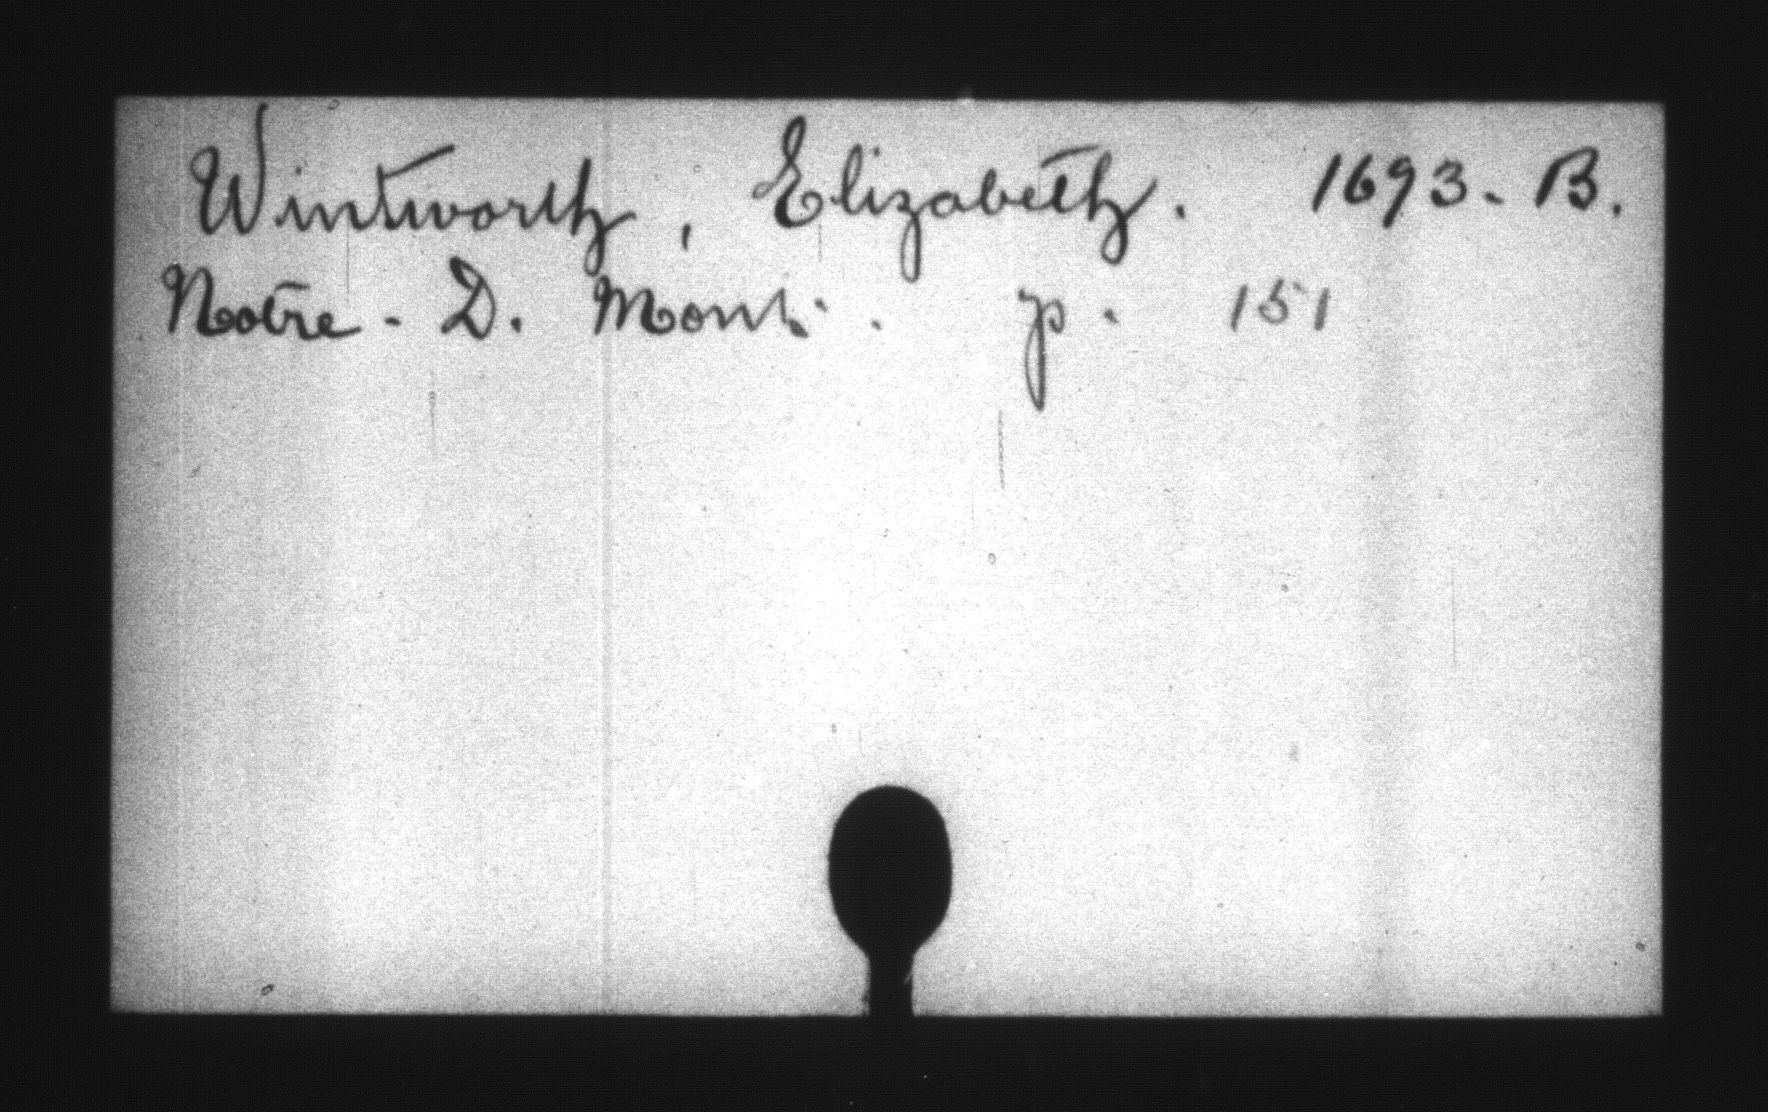 Wintworth, Elizabeth. 1693 - B.
Notre - D. Mont. p. 151